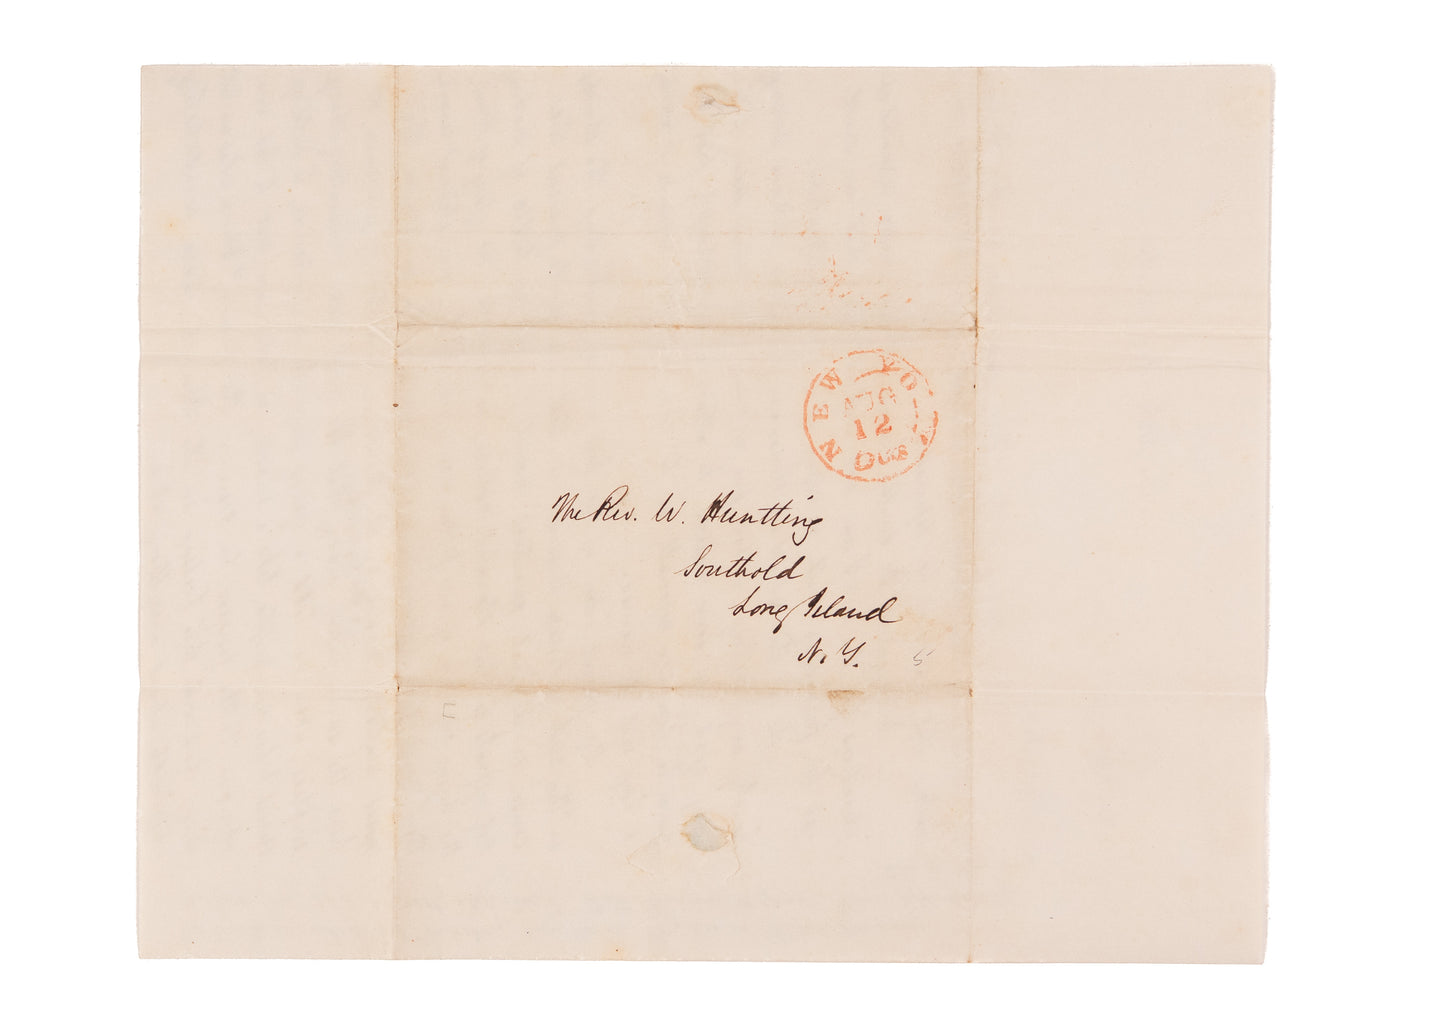 NEW YO
AUG
12
5 cts
The Rev. W. Huntting
Southold
Long Island
N. Y.
5